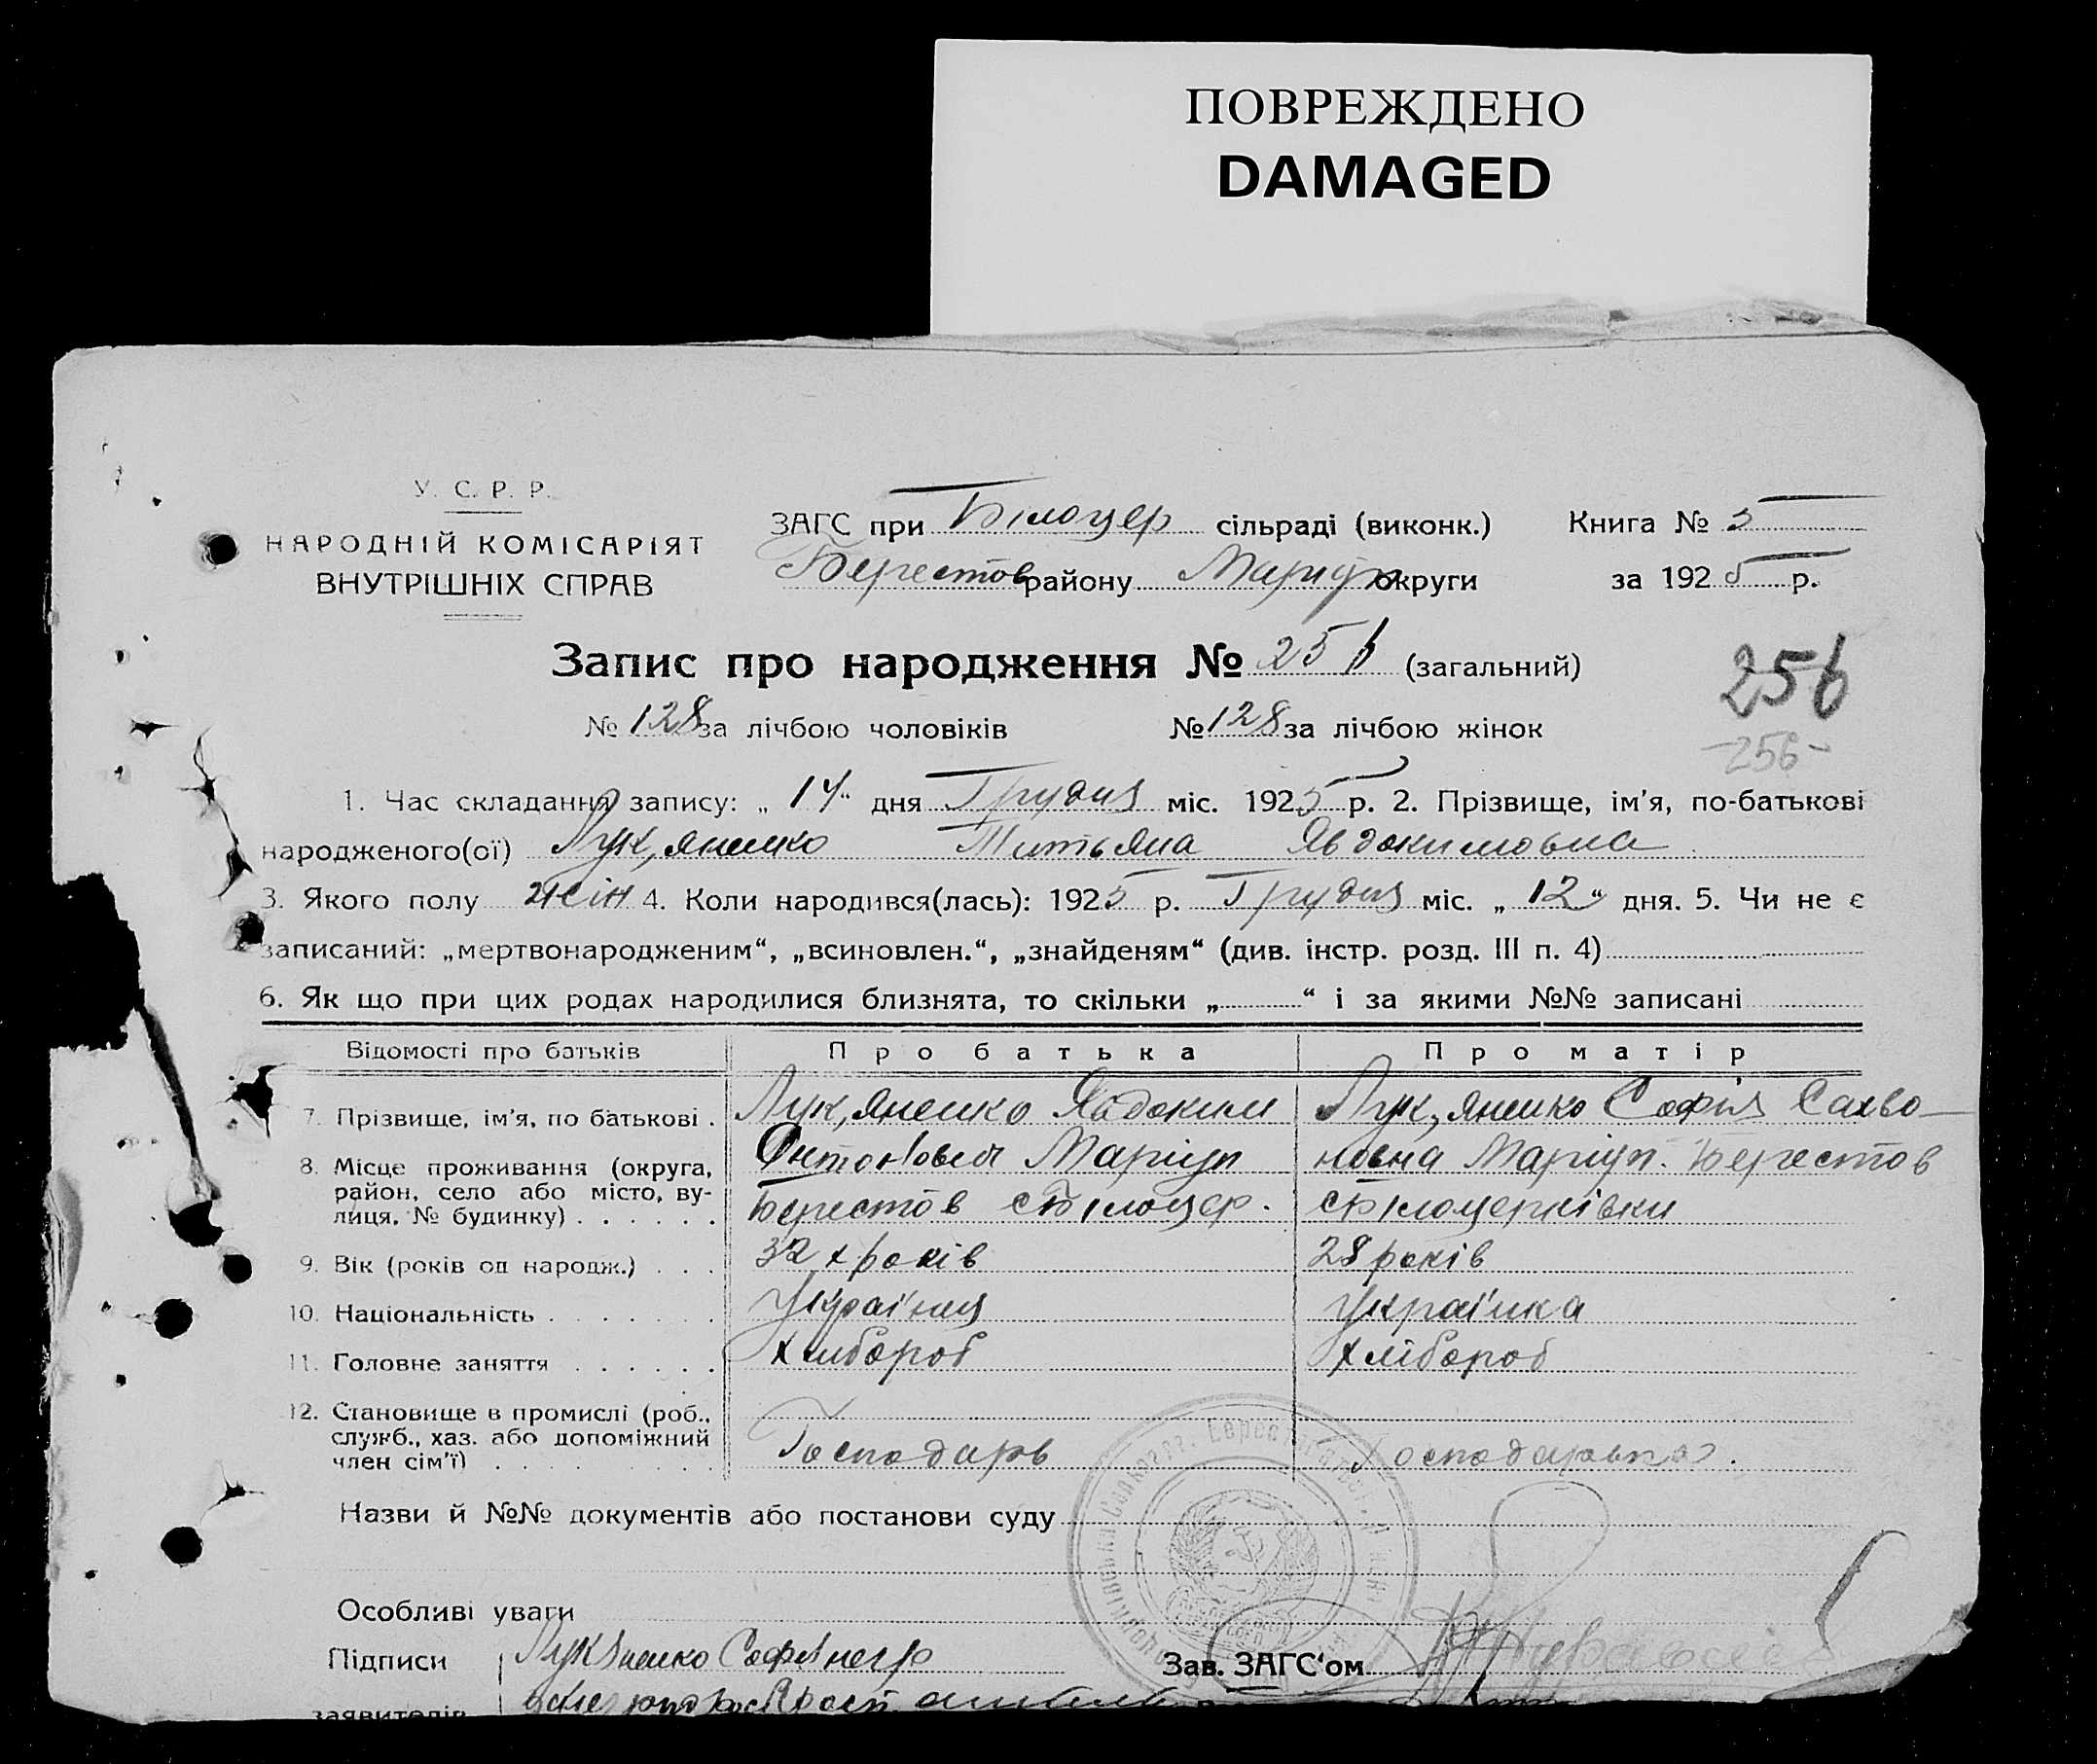 ПОВРЕЖДЕНО
DAMAGED
У. С. Р. Р.
НАРОДНІЙ КОМІСАРІЯТ
ВНУТРІШНІХ СПРАВ
ЗАГС при Білоцер сільраді (виконк.) Книга № 5
Берестов району Маріуп округи за 1925 р.
Запис про народження № 256 (загальний)
256
№ 128 за лічбою чоловіків № 128 за лічбою жінок
-256-
1. Час складання запису: „ 14 “ дня Грудня міс. 1925 р. 2. Прізвище, ім'я, по-батькові
народженого(ої) Лук,яненко Титьяна Явдокимовна
3. Якого полу жін 4. Коли народився(лась): 1925 р. Грудня міс. „ 12 “ дня. 5. Чи не є
записаний: „мертвонародженим“, „всиновлен.“, „знайденям“ (див. інстр. розд. III п. 4)
6. Як що при цих родах народилися близнята, то скільки „ “ і за якими №№ записані
Відомості про батьків Про батька Про матір
7. Прізвище, ім'я, по батькові . Лук,яненко Явдоким Лук,яненко Софія Сахво-
8. Місце проживання (округа, Антонович Маріуп новна Маріуп. Берестов
район, село або місто, ву-
лиця, № будинку) . . . . . . Берестов с Білоцер. с Білоцерківки
9. Вік (років од народж.) . . . 32 х років 28 років
10. Національність . . . . . . . Українця Українка
11. Головне заняття . . . . . . Хлибороб Хлібороб
12. Становище в промислі (роб.,
служб., хаз. або допоміжний
член сім'ї) . . . . . . . . . Господарь Господарька.
Назви й №№ документів або постанови суду
Особливі уваги
Підписи Лукяненко Софя негр Зав. ЗАГС'ом
заявителів